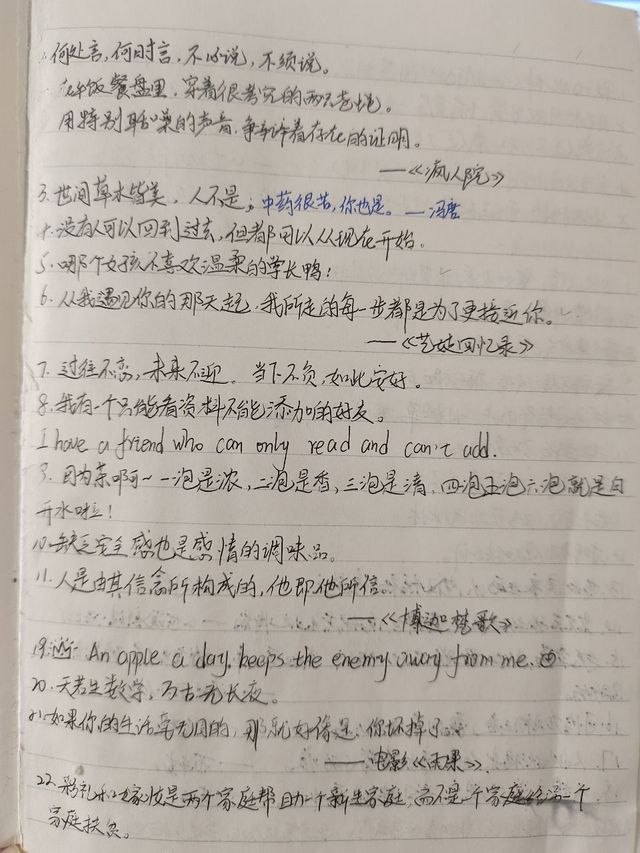 何处言,何时言,不必说,不须说。
在午饭餐盘里,穿着很考究的两只老蝇。
用特别聒噪的声音,争辩着存在的证明。
——《疯人院》
3. 世间草木皆美,人不是;中药很苦,你也是。—冯唐
4. 没有人可以回到过去,但都可以从现在开始。
5. 哪个女孩不喜欢温柔的学长鸭!
6. 从我遇见你的那天起,我所走的每一步都是为了更接近你。
——《艺妓回忆录》
7. 过往不恋,未来不迎。当下不负,如此安好。
8. 我有一个只能看资料不能添加的好友。
I have a friend who can only read and can't add.
9. 因为茶啊~一泡是浓,二泡是香,三泡是清,四泡五泡六泡就是白
开水啦!
10. 缺乏安全感也是感情的调味品。
11. 人是由其信念所构成的,他即他所信。
——《博迦梵歌》
19. An apple a day keeps the enemy away from me.
20. 天若生数学,万古无长夜。
21. 如果你的生活毫无目的,那就好像是:你坏掉了。
——电影《雨果》
22. 彩礼和嫁妆是两个家庭帮助一个新生家庭,而不是一个家庭给一个
家庭扶贫。